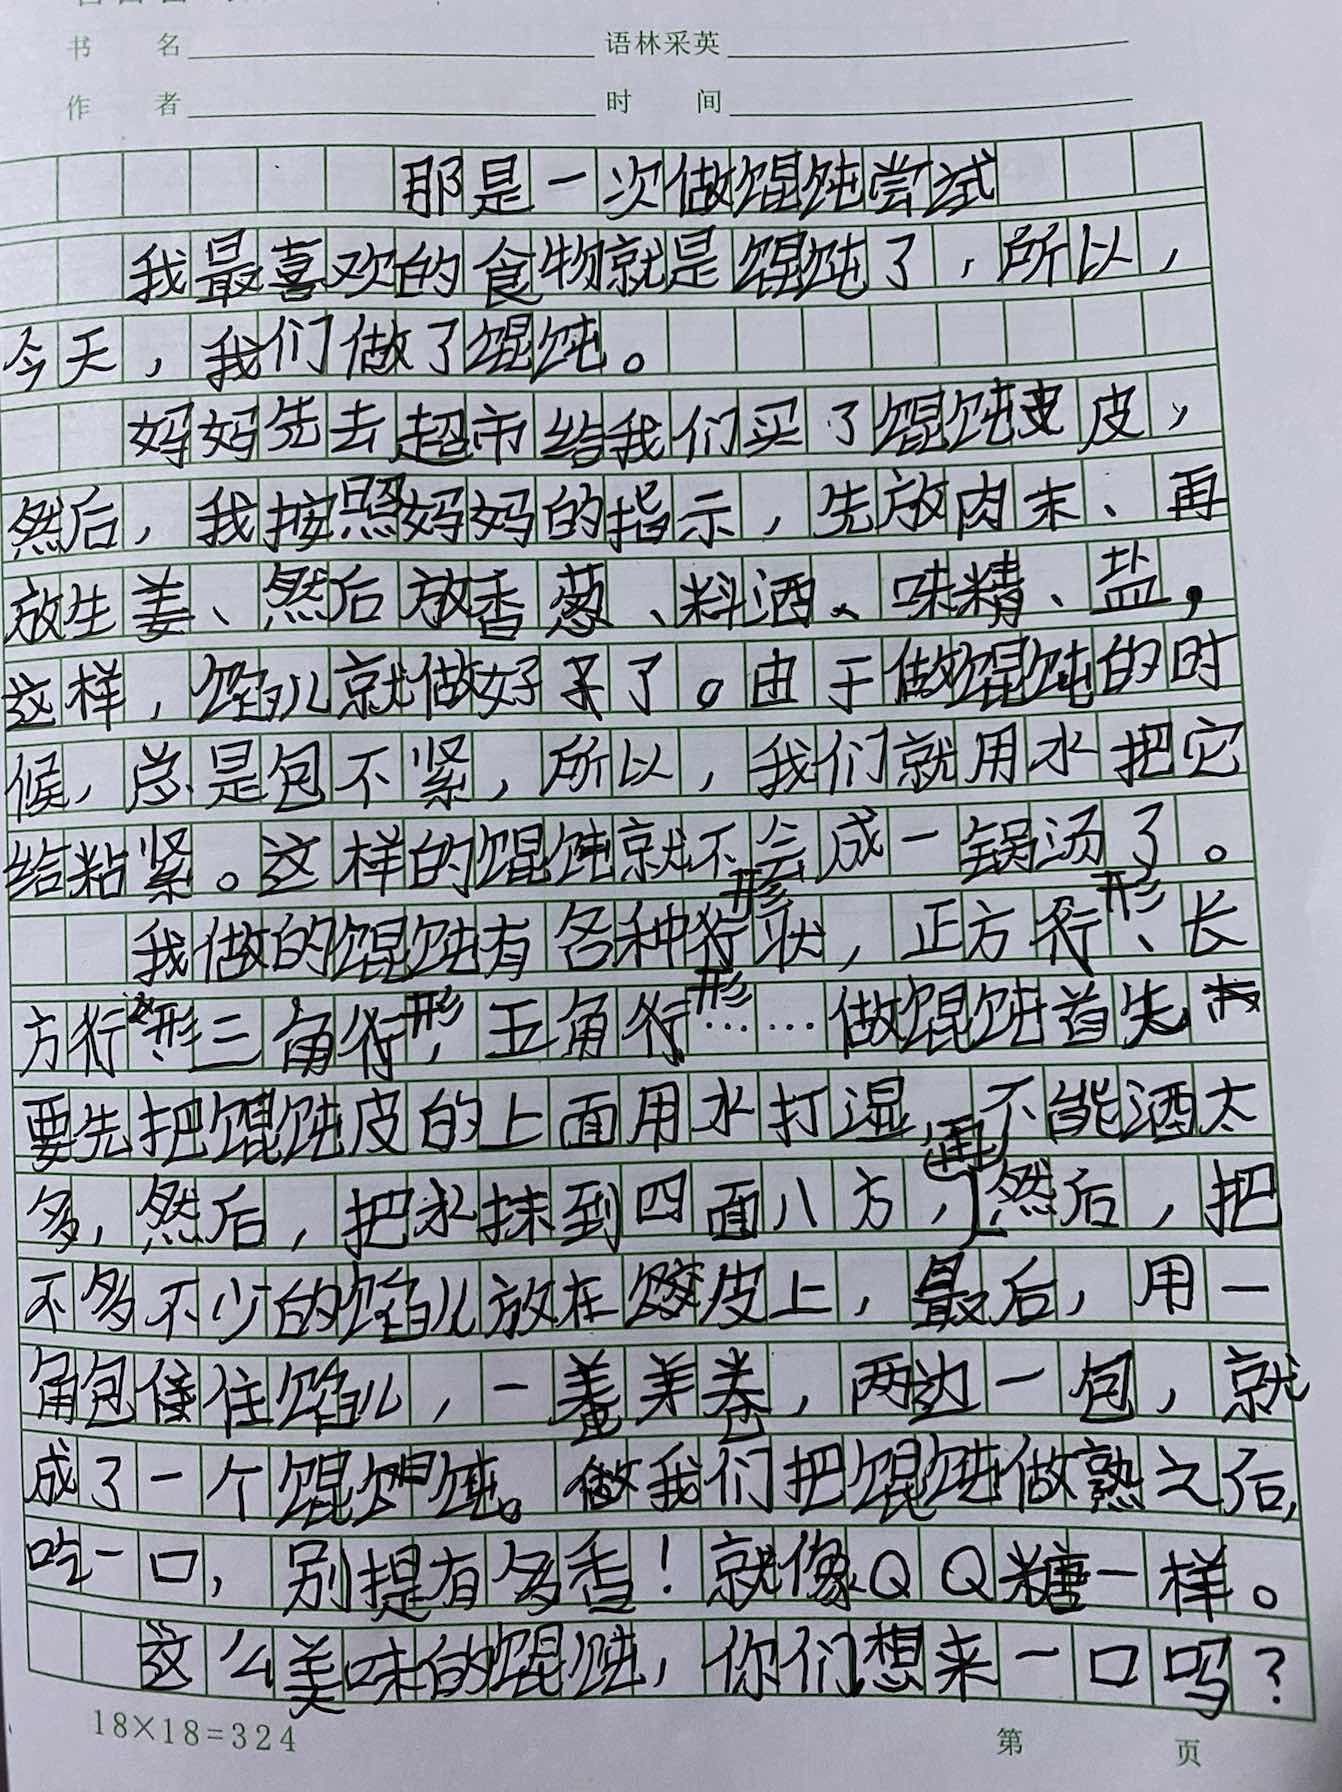 书 名 语林采英
作 者 时 间
那是一次做馄饨尝试
我最喜欢的食物就是馄饨了，所以，
今天，我们做了馄饨。
妈妈先去超市给我们买了馄饨皮，
然后，我按照妈妈的指示，先放肉末、再
放生姜、然后放香葱、料酒、味精、盐，
这样，馅儿就做好了。由于做馄饨的时
候，总是包不紧，所以，我们就用水把它
给粘紧。这样的馄饨就不会成一锅汤了。
我做的馄饨有各种形状，正方形、长
方形三角形，五角形……做馄饨首先
要先把馄饨皮的上面用水打湿，不能洒太
多，然后，把水抹到四面八方，再然后，把
不多不少的馅儿放在饺皮上，最后，用一
角包住馅儿，一卷，两边一包，就
成了一个馄饨。我们把馄饨做熟之后，
吃一口，别提有多香！就像QQ糖一样。
这么美味的馄饨，你们想来一口吗？
18×18=324 第 页